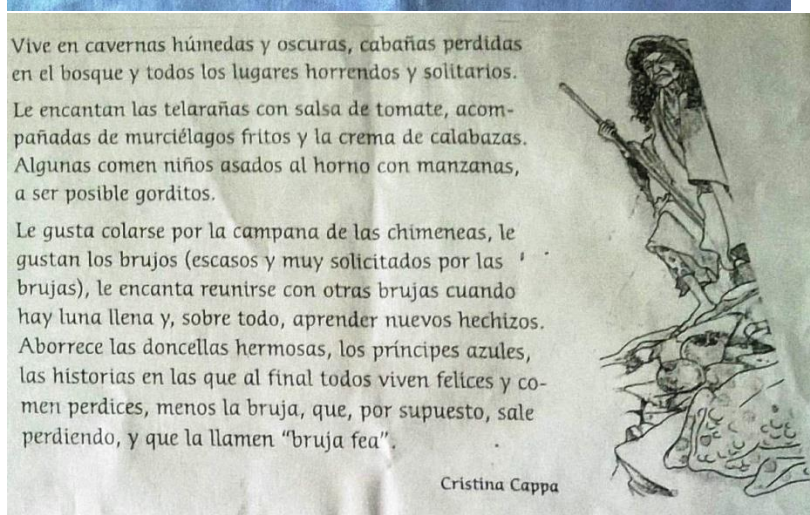 Vive en cavernas húmedas y oscuras, cabañas perdidas
en el bosque y todos los lugares horrendos y solitarios.
Le encantan las telarañas con salsa de tomate, acom-
pañadas de murciélagos fritos y la crema de calabazas.
Algunas comen niños asados al horno con manzanas,
a ser posible gorditos.
Le gusta colarse por la campana de las chimeneas, le
gustan los brujos (escasos y muy solicitados por las
brujas), le encanta reunirse con otras brujas cuando
hay luna llena y, sobre todo, aprender nuevos hechizos.
Aborrece las doncellas hermosas, los príncipes azules,
las historias en las que al final todos viven felices y co-
men perdices, menos la bruja, que, por supuesto, sale
perdiendo, y que la llamen “bruja fea”.
Cristina Cappa